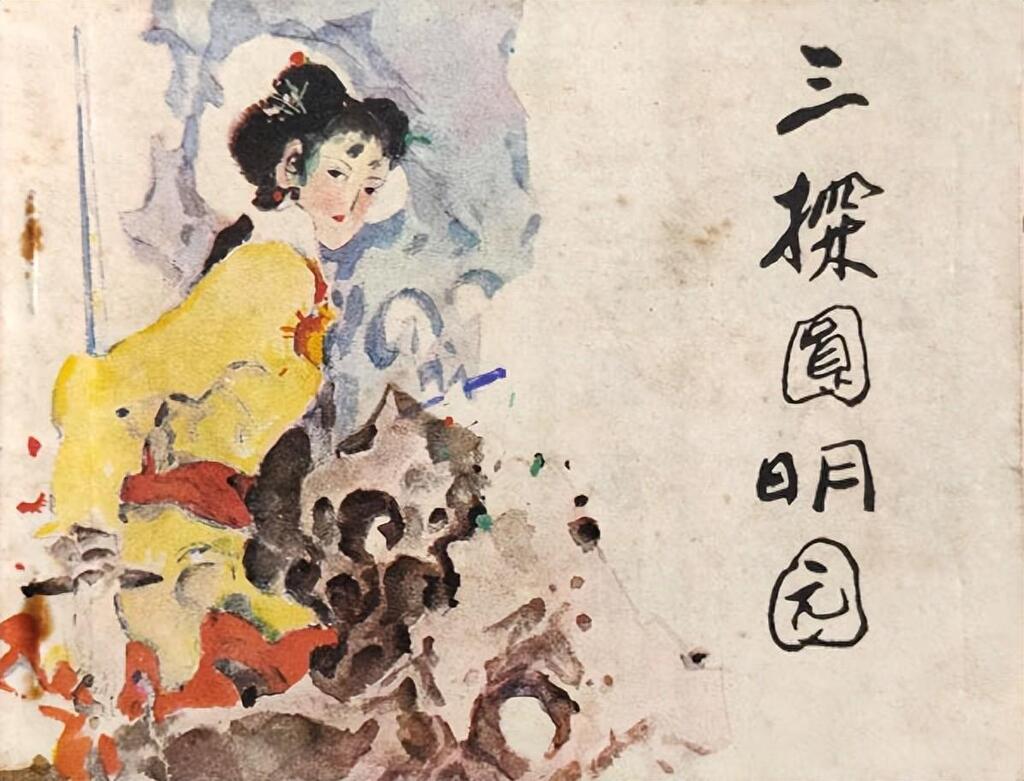 三探圓明园